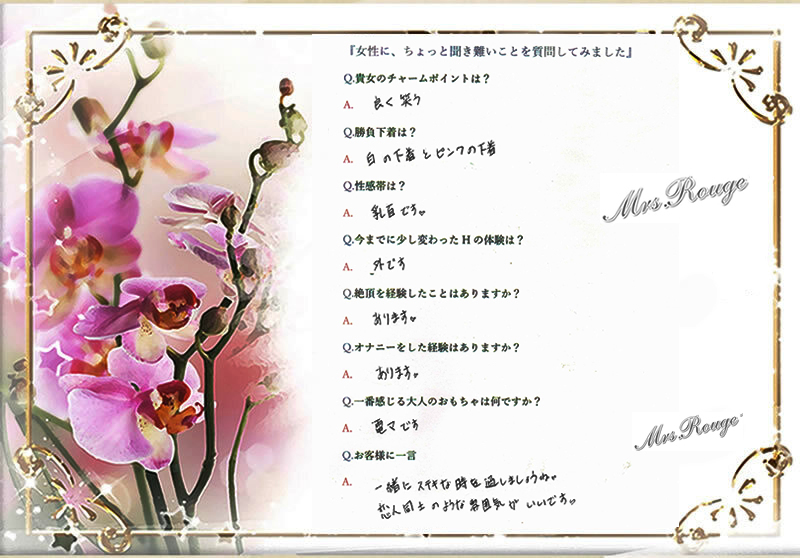 『女性に、ちょっと聞き難いことを質問してみました』
Q.貴女のチャームポイントは？
A. 良く笑う
Q.勝負下着は？
A. 白の下着とピンクの下着
Q.性感帯は？
A. 乳首です。
Q.今までに少し変わったHの体験は？
A. 外です
Q.絶頂を経験したことはありますか？
A. あります。
Q.オナニーをした経験はありますか？
A. あります。
Q.一番感じる大人のおもちゃは何ですか？
A. 電マです
Q.お客様に一言
A. 一緒にステキな時を過しましょうね。
恋人同士のような雰囲気がいいです。
Mrs.Rouge
Mrs.Rouge